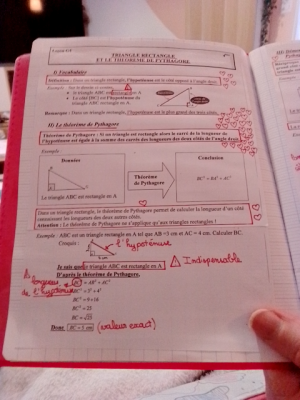 TRIANGLE RECTANGLE
ET LE THEOREME DE PYTHAGORE
I) Vocabulaire
Définition : Dans un triangle rectangle, l'hypoténuse est le côté opposé à l'angle droit.
Exemple :
le triangle ABC est rectangle en A
Le côté [BC] est l'hypoténuse du
triangle ABC rectangle en A.
Remarque : Dans un triangle rectangle, l'hypoténuse est le plus grand des trois côtés.
II) Le théorème de Pythagore
Théorème de Pythagore : Si un triangle est rectangle alors le carré de la longueur de
l'hypoténuse est égale à la somme des carrés des longueurs des deux côtés de l'angle droit.
Exemple :
Données
Le triangle ABC est rectangle en A
Théorème
de Pythagore
Conclusion
BC² = BA² + AC²
Dans un triangle rectangle, le théorème de Pythagore permet de calculer la longueur d'un côté
connaissant les longueurs des deux autres côtés.
Attention : Le théorème de Pythagore ne s'applique qu'aux triangles rectangles !
Exemple : ABC est un triangle rectangle en A tel que AB =3 cm et AC = 4 cm. Calculer BC.
Croquis :
l'hypoténuse
Je sais que le triangle ABC est rectangle en A
Indispensable
D'après le théorème de Pythagore,
la longueur de l'hypoténuse
BC² = AB² + AC²
BC² = 3² + 4²
BC² = 9 + 16
BC² = 25
BC = √25
Donc BC = 5 cm (valeur exact)